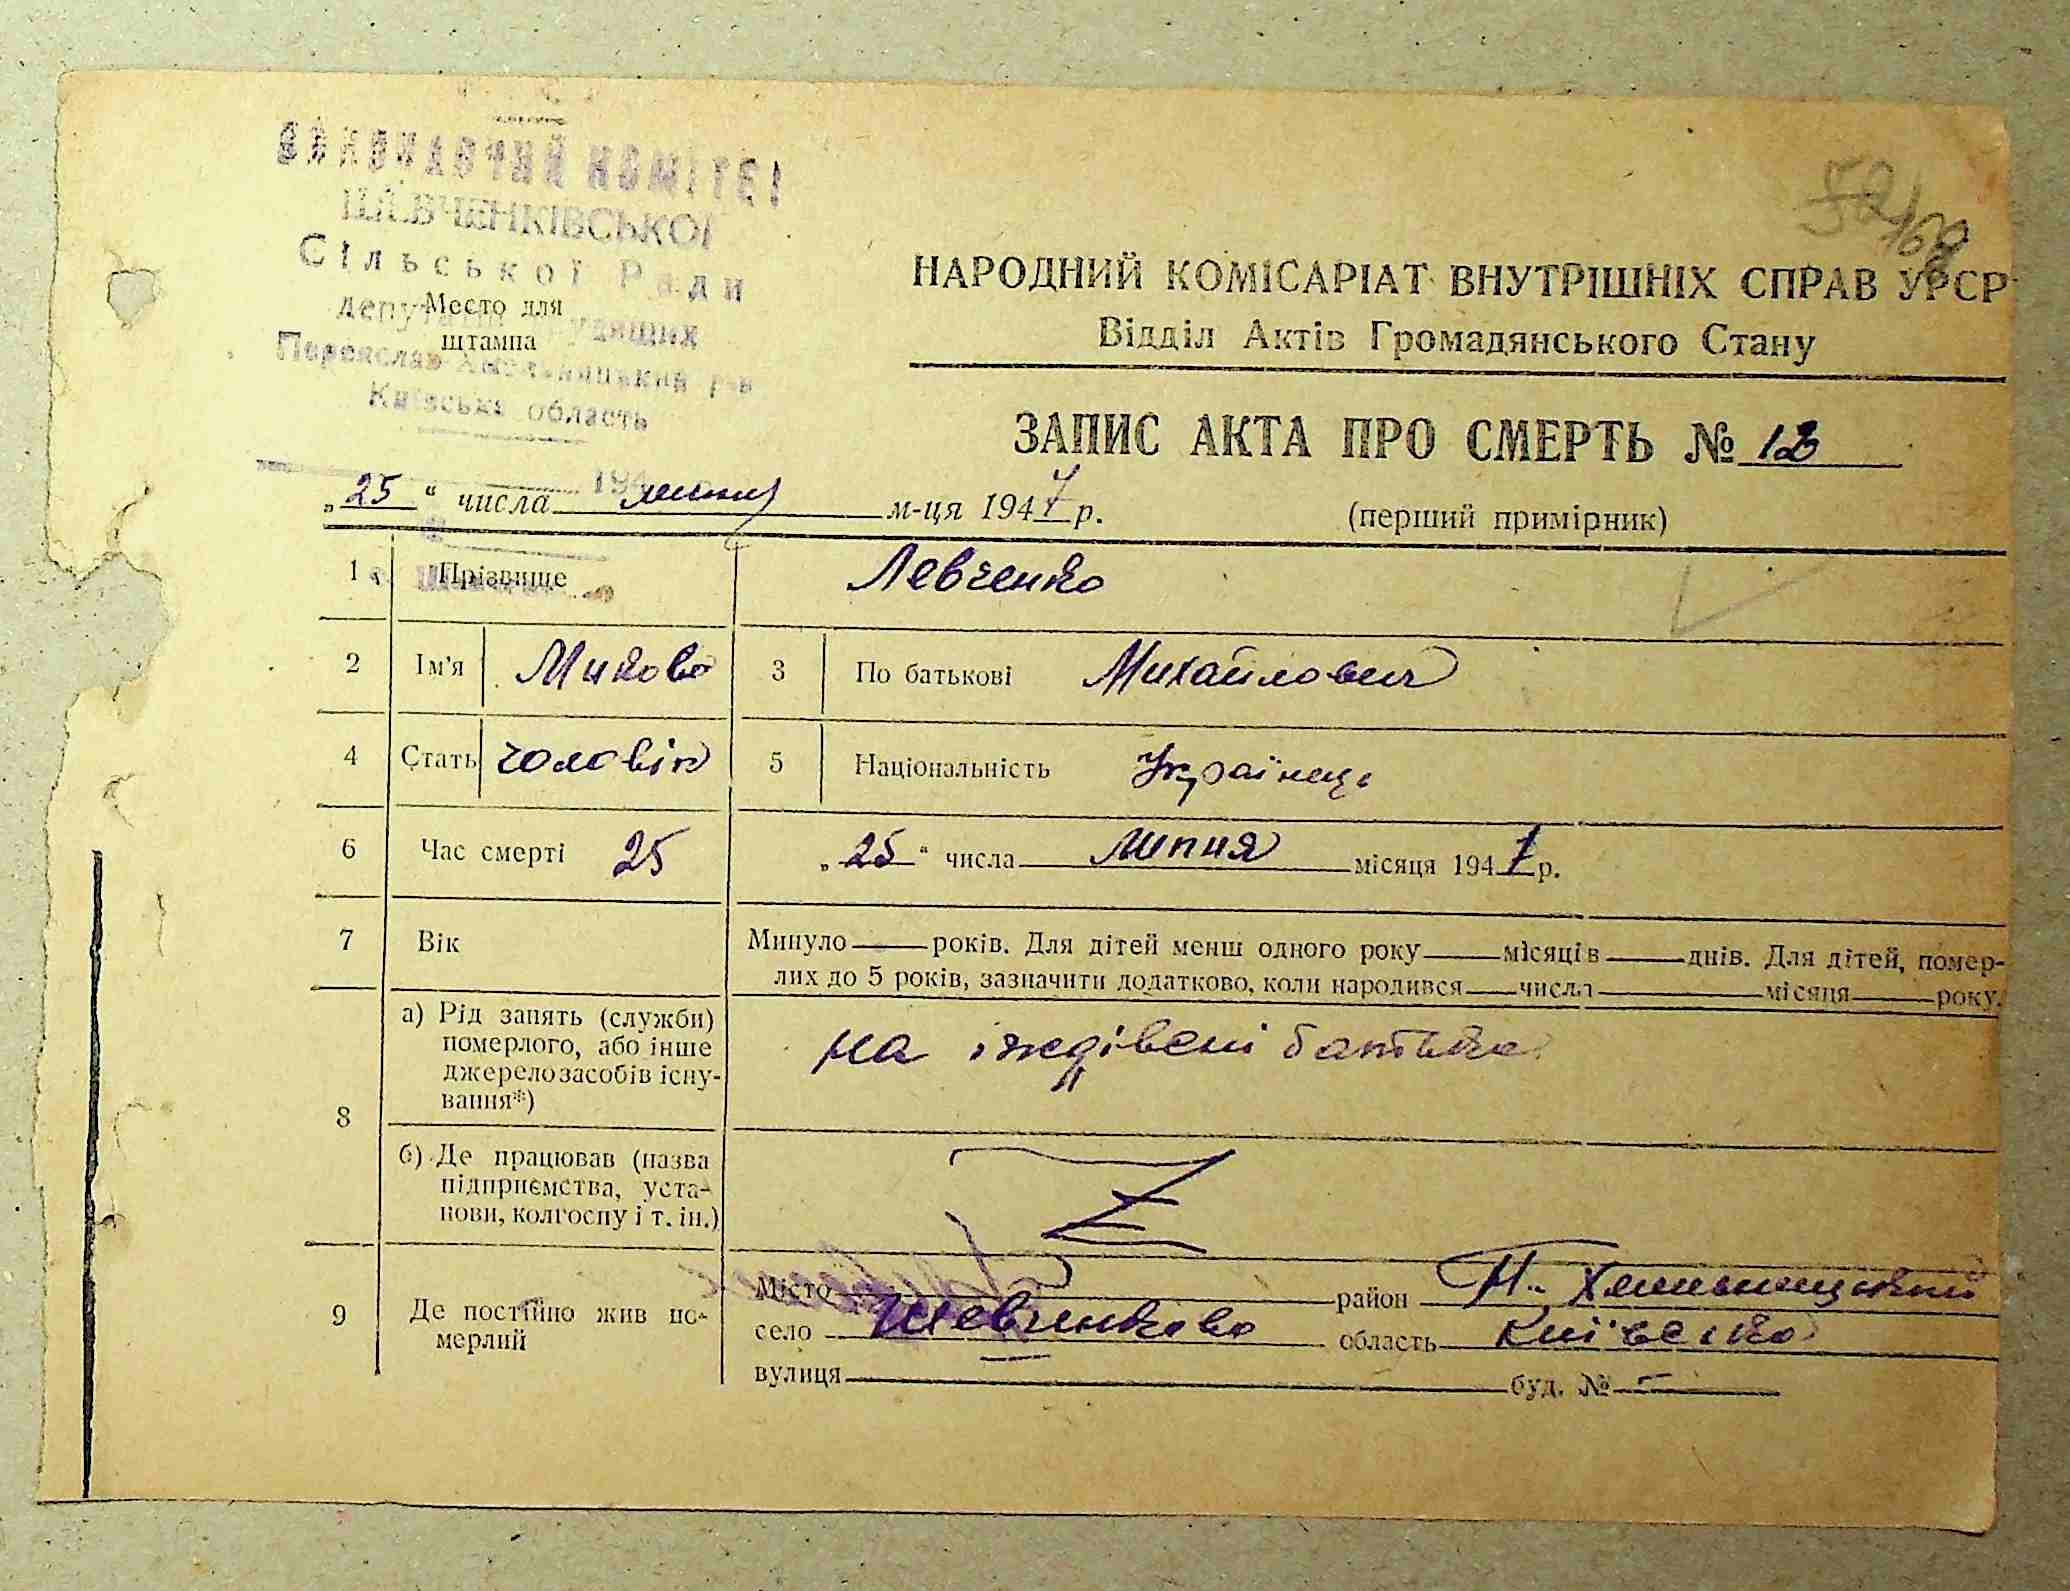 ВИКОНАВЧИЙ КОМІТЕТ
ШЕВЧЕНКІВСЬКОЇ
Сільської Ради
депутатів трудящих
Переяслав-Хмельницький р-н
Київська область
Место для
штампа
52/68
НАРОДНИЙ КОМІСАРІАТ ВНУТРІШНІХ СПРАВ УРСР
Відділ Актів Громадянського Стану
ЗАПИС АКТА ПРО СМЕРТЬ № 12
„25“ числа липня м-ця 1947 р.
(перший примірник)
1 Прізвище Левченко
2 Ім'я Микола 3 По батькові Михайлович
4 Стать чоловік 5 Національність Українець
6 Час смерті 25 „25“ числа липня місяця 1947 р.
7 Вік Минуло — років. Для дітей менш одного року — місяців — днів. Для дітей, помер-
лих до 5 років, зазначити додатково, коли народився — числа — місяця — року.
8 а) Рід занять (служби)
померлого, або інше
джерело засобів існу-
вання*)
на іждівені батька
б) Де працював (назва
підприємства, уста-
нови, колгоспу і т. ін.)
9 Де постійно жив по-
мерлий
Місто район П.-Хмельницький
село Шевченково область Київська
вулиця буд. № —